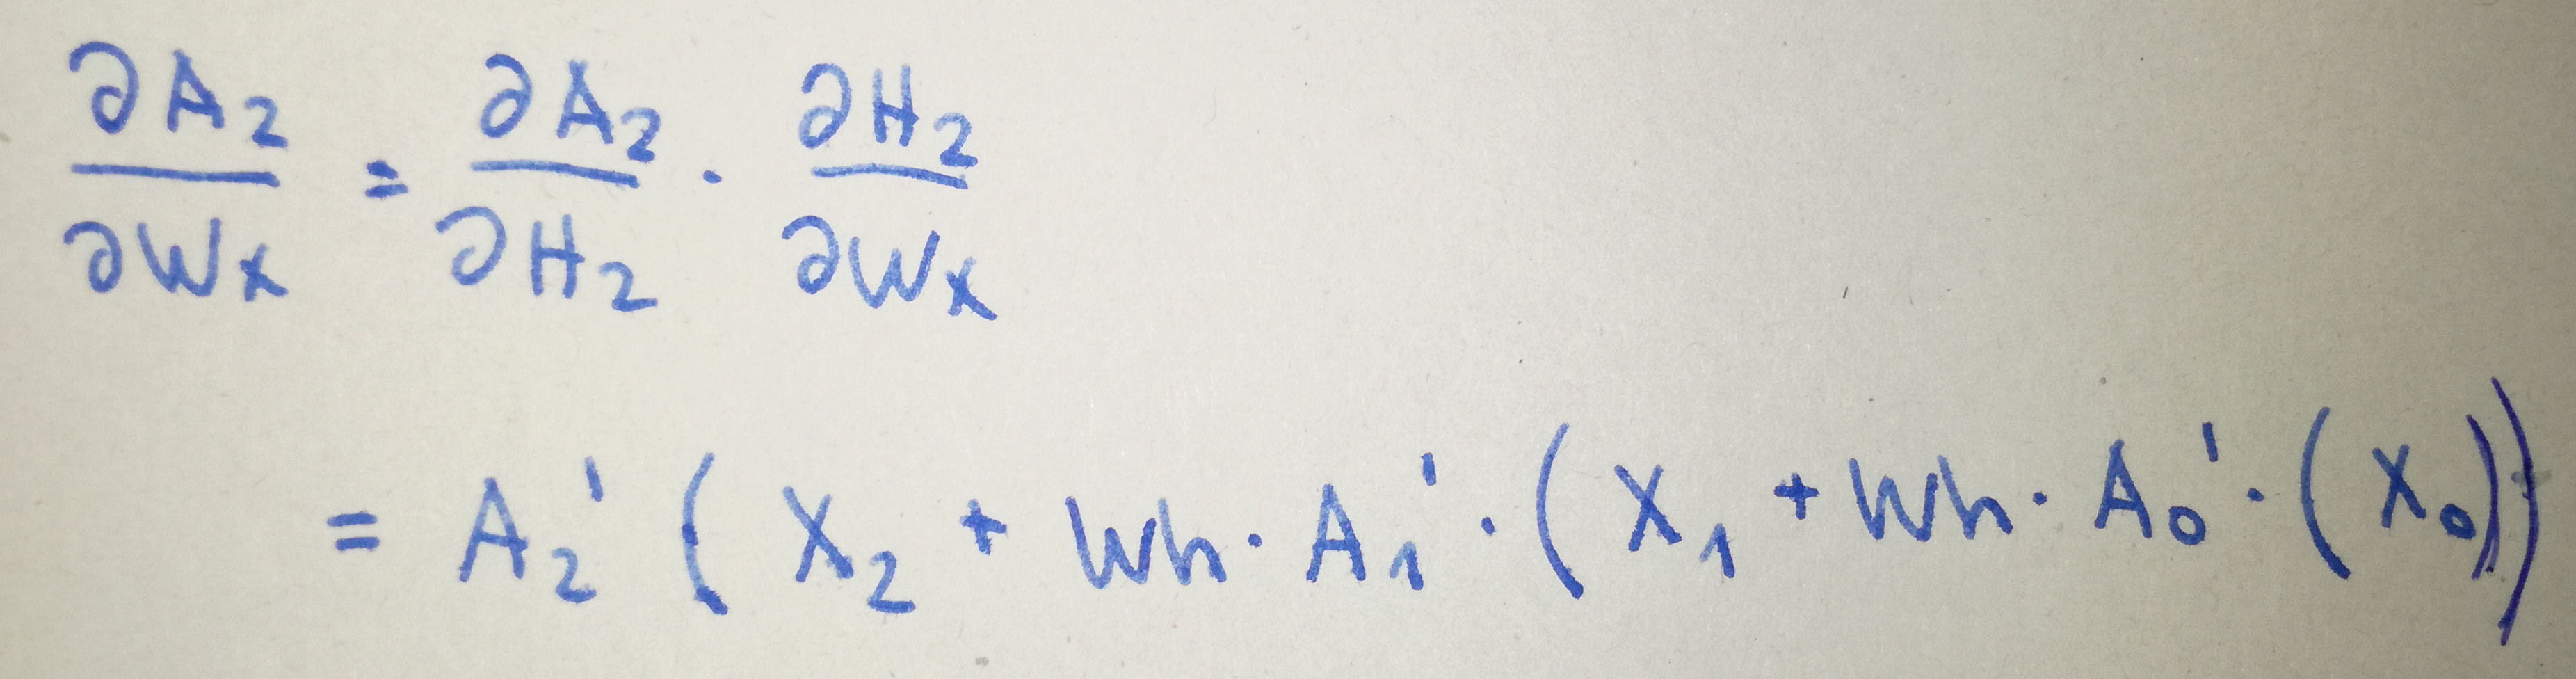 ∂A₂/∂Wx = ∂A₂/∂H₂ · ∂H₂/∂Wx
= A₂' ( X₂ + Wh · A₁' · ( X₁ + Wh · A₀' · ( X₀ ) ) )